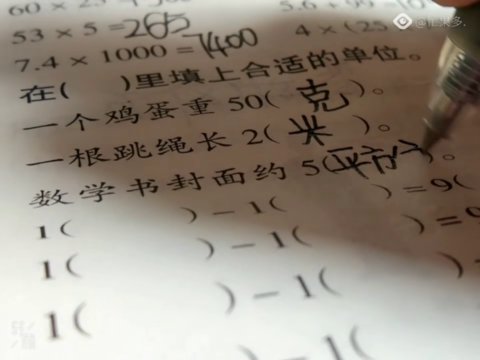 60 × 25
5.6 + 99 =
53 × 5 = 265
4 × (25
7.4 × 1000 = 7400
在( )里填上合适的单位。
一个鸡蛋重 50(克)。
一根跳绳长 2(米)。
数学书封面约 5(平方分)。
1( ) − 1( ) = 9(
1( ) − 1( ) = 9
1( ) − 1(